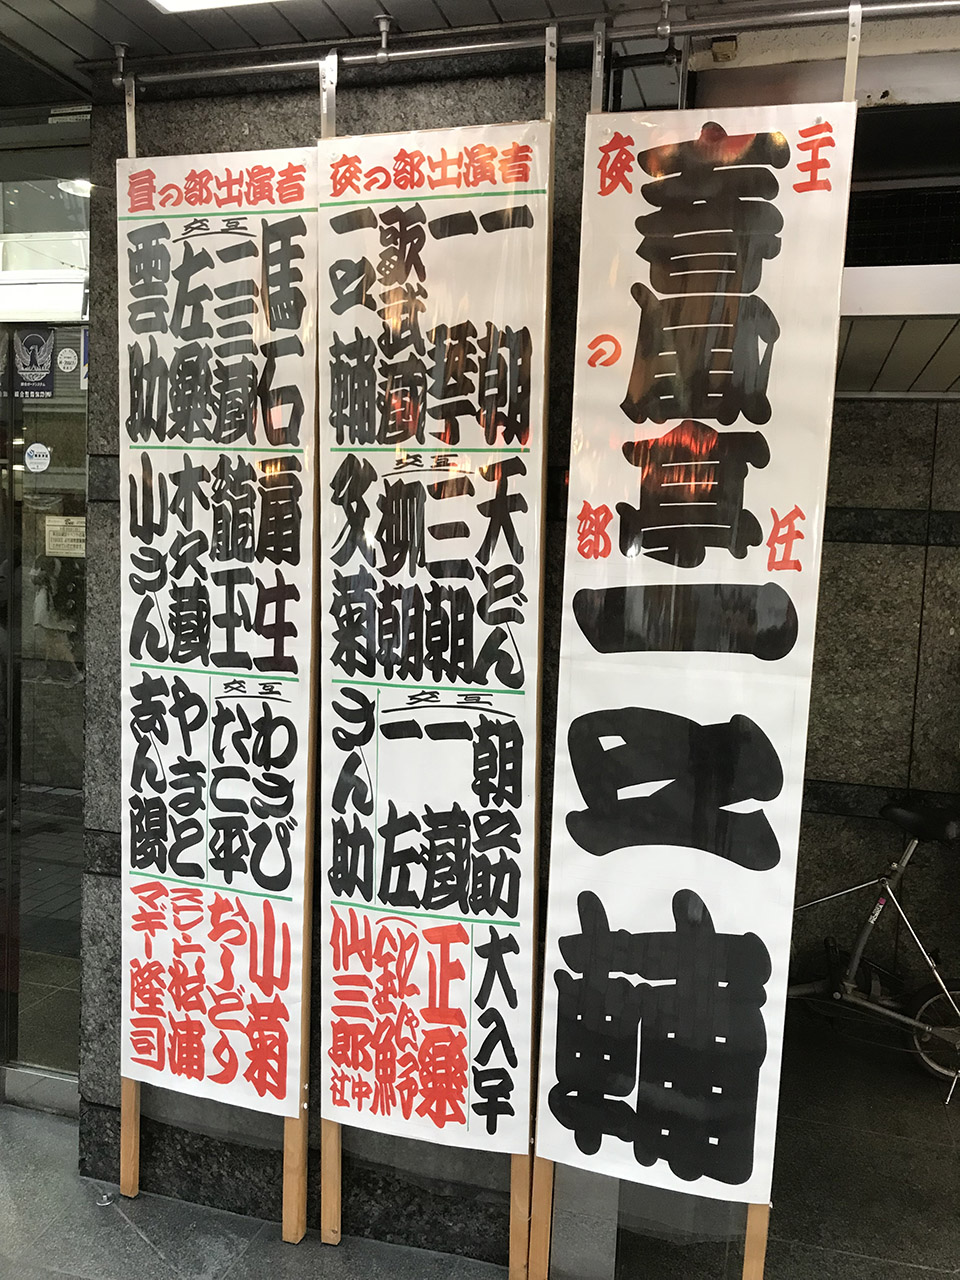 主任
夜の部
春風亭一之輔
夜の部出演者
一朝
一琴
歌武蔵
一之輔
天どん
交互
三朝
柳朝
文菊
朝之助
交互
一蔵
一左
さん助
正楽
仙三郎社中
昼の部出演者
馬石
交互
二三蔵
左楽
雲助
扇生
龍玉
木久蔵
小さん
交互
わさび
たこ平
やまと
志ん陽
小菊
ストレート松浦
マギー隆司